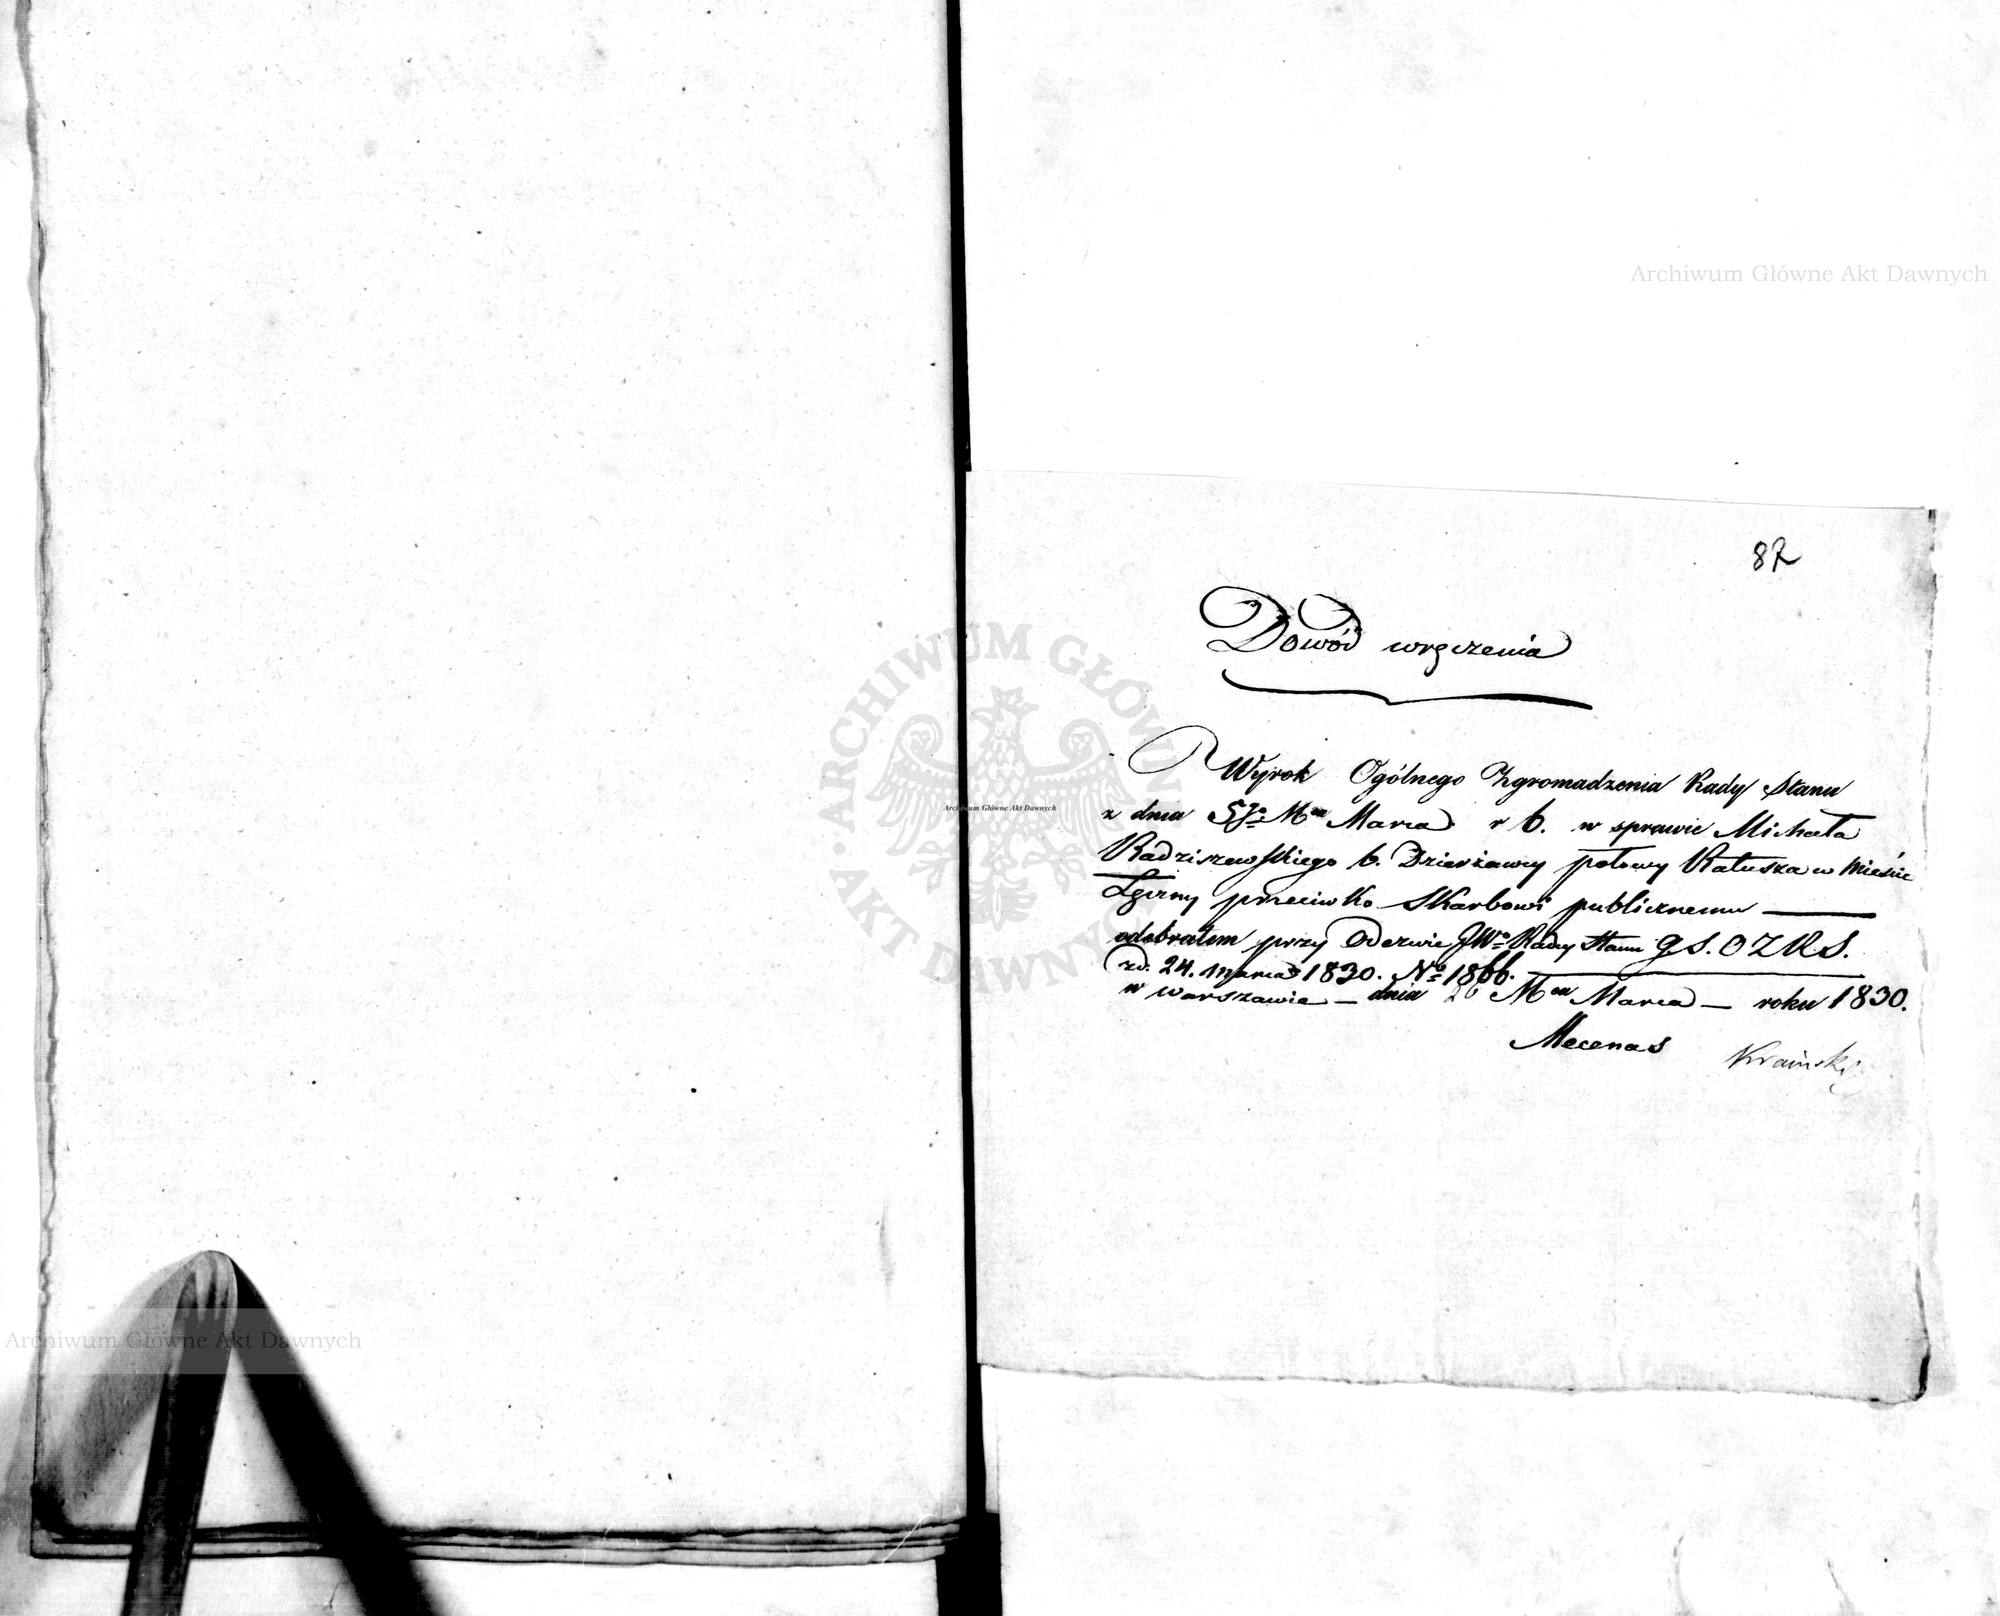 Archiwum Główne Akt Dawnych
87
Dowód wręczenia
Wyrok Ogólnego Zgromadzenia Rady Stanu
z dnia 5go Mca Marca r b. w sprawie Michała
Radziszewskiego b. Dzierżawcy połowy Ratusza w Mieście
przeciwko Skarbowi publicznemu —
odebrałem przy Odezwie JWo Rady Stanu
zd. 24. Marca 1830. No 1866. —
w Warszawie — dnia 26 Mca Marca — roku 1830.
Mecenas Kraiński
ARCHIWUM GŁÓWNE AKT DAWNYCH
Archiwum Główne Akt Dawnych
Archiwum Główne Akt Dawnych